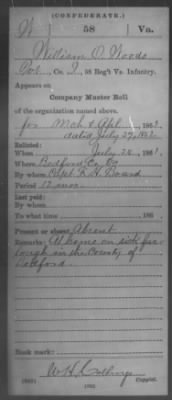 (CONFEDERATE.)
W 58 Va.
William O. Woods
Co. 58 Reg't Va. Infantry.
Appears on
Company Muster Roll
of the organization named above,
for Mch & Apl, 1862,
dated July 29, 1862
Enlisted:
When July 28, 186
Where Bedford Co. Va
By whom Capt. F. H. Board
Period 12 mos.
Last paid:
By whom
To what time , 186 .
Present or absent Absent
Remarks: At home on sick fur
lough in the County of
Bedford.
Book mark:
W. H.
Copyist.